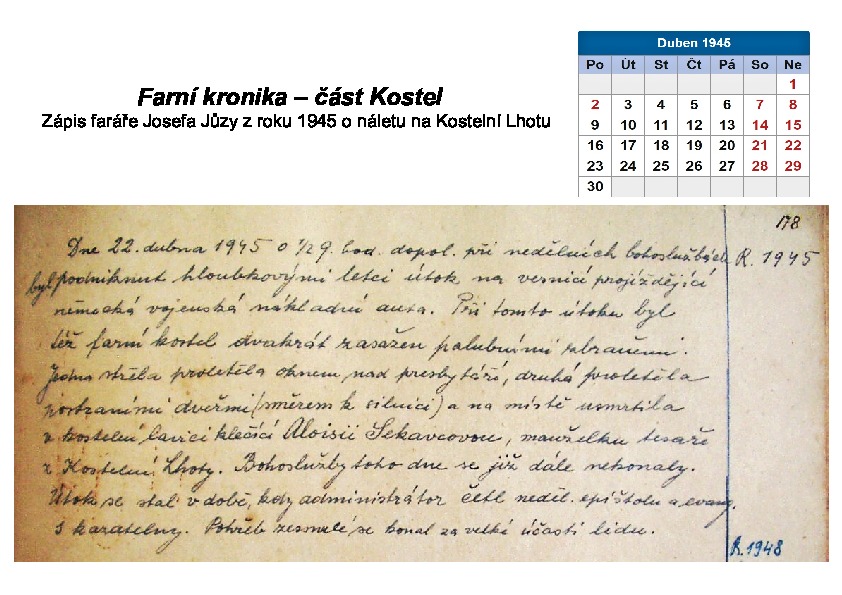 Farní kronika – část Kostel
Zápis faráře Josefa Jůzy z roku 1945 o náletu na Kostelní Lhotu
Duben 1945
Po Út St Čt Pá So Ne
1
2 3 4 5 6 7 8
9 10 11 12 13 14 15
16 17 18 19 20 21 22
23 24 25 26 27 28 29
30
178
Dne 22. dubna 1945 o ½ 9. hod. dopol. při nedělních bohoslužbách R. 1945
byl podniknut hloubkovými letci útok na vesnicí projíždějící
německá vojenská nákladní auta. Při tomto útoku byl
též farní kostel dvakrát zasažen palubními zbraněmi.
Jedna střela proletěla oknem nad presbytáří, druhá proletěla
postranními dveřmi (směrem k silnici) a na místě usmrtila
v kostelní lavici klečící Aloisii Sekavcovou, manželku tesaře
z Kostelní Lhoty. Bohoslužby toho dne se již dále nekonaly.
Útok se stal v době, kdy administrátor četl neděl. epištolu a evang.
s kazatelny. Pohřeb zesnulé se konal za velké účasti lidu.
R. 1948